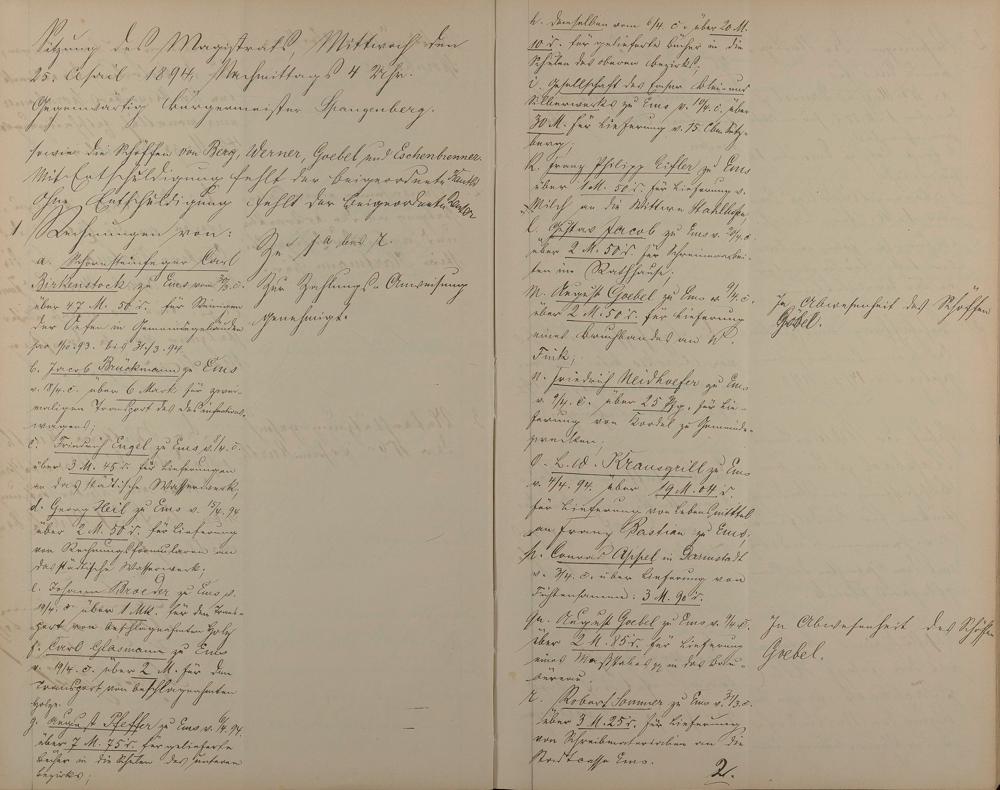 Sitzung des Magistrats Mittwoch den
25. April 1894. Nachmittags 4 Uhr.
Gegenwärtig Bürgermeister Spangenberg.
sowie die Schöffen von Berg, Werner, Goebel, und Eschenbrenner.
Mit Entschuldigung fehlt der Beigeordnete
Ohne Entschuldigung fehlt der Beigeordnete
1. Rechnungen von:
a. Schornsteinfeger Carl
Birkenstock zu Ems vom
über 47 M. 50 d. für Reinigen
der Oefen in Gemeindegebäuden
pro 1/10.93. bis 31./3.94.
b. Jacob Brückmann zu Ems
v. 8/4. c. über 6 Mark für zwei-
maligen Transport des Desinfections-
wagens;
c. Friedrich Engel zu Ems
über 3 M. 45 d. für Lieferungen
an das städtische Wasserwerk,
d. Georg Heil zu Ems v. 94
über 2 M. 50 d. für Lieferung
von Rechnungsformularen an
das städtische Wasserwerk.
e. Johann Broeder zu Ems v.
über 1 Mk. für den Trans-
port von beschlagnahmten Holz
f. Carl Glasmann zu Ems
v. 19/4. c. über 2 M. für den
Transport von beschlagnahmten
Holze.
g. August Pfeffer zu Ems v. 94
über 7 M. 75 d. für gelieferte
Bücher in die Schulen des unteren
Bezirks;
Zu 1. a bis r.
Zur Zahlungs-Anweisung
genehmigt.
h. demselben vom 6/4. c. über 20 M.
10 d. für gelieferte Bücher in die
Schulen des oberen Bezirks;
i. Gesellschaft des Emser Blei- und
Silberwerks zu Ems v. 19/4. c. über
30 M. für Lieferung v. 15 Cbm.
k. Franz Philipp Eifler zu Ems
über 1 M. 50 d. für Lieferung v.
Milch an die Wittwe Stahlhofen,
l. Gustav Jacob zu Ems v.
über 2 M. 50 d. für Schreinerarbei-
ten im Rathhause;
m. August Goebel zu Ems v. c.
über 2 M. 50 d. für Lieferung
eines Bruchbandes an W.
Fink;
n. Friedrich Neidhoefer zu Ems
v. c. über 25 Pfg. für Lie-
ferung von Kordel zu Gemeinde-
zwecken.
o. L. W. Krausgrill zu Ems
v. 4/4. 94. über 19 M. 04 d.
für Lieferung von Lebensmittel
an Franz Bastian zu Ems.
p. Conrad Appel in Darmstadt
v. c. über Lieferung von
Fichtensamen: 3 M. 90 d.
qu. August Goebel zu Ems v.
über 2 M. 85 d. für Lieferung
eines Maßstabes pp in das Bau-
büreau.
r. Robert Sommer zu Ems v. 31/3. c.
über 3 M. 25 d. für Lieferung
von Schreibmaterialien an die
Stadtcasse Ems.
2.
In Abwesenheit des Schöffen
Göbel.
In Abwesenheit des Schöffen
Goebel.